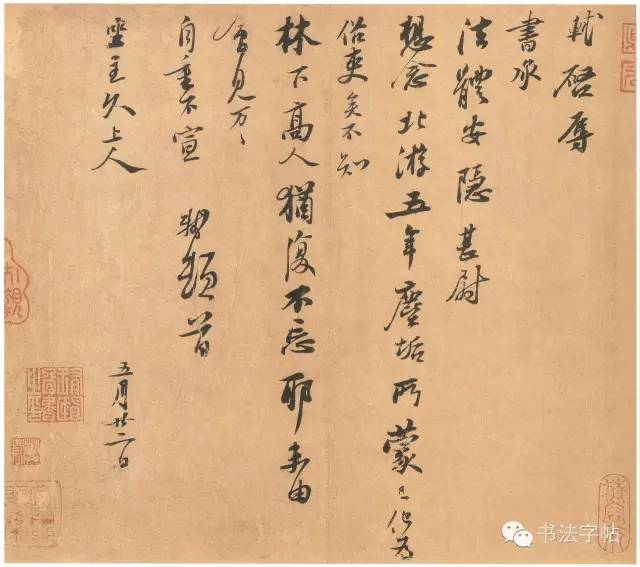 軾啓辱
書承
法體安隱甚尉
想念北游五年塵垢所蒙已化爲
俗吏矣不知
林下高人猶復不忘耶未由
會見万〻
自重不宣 軾頓首
坐主久上人
五月廿二日
书法字帖